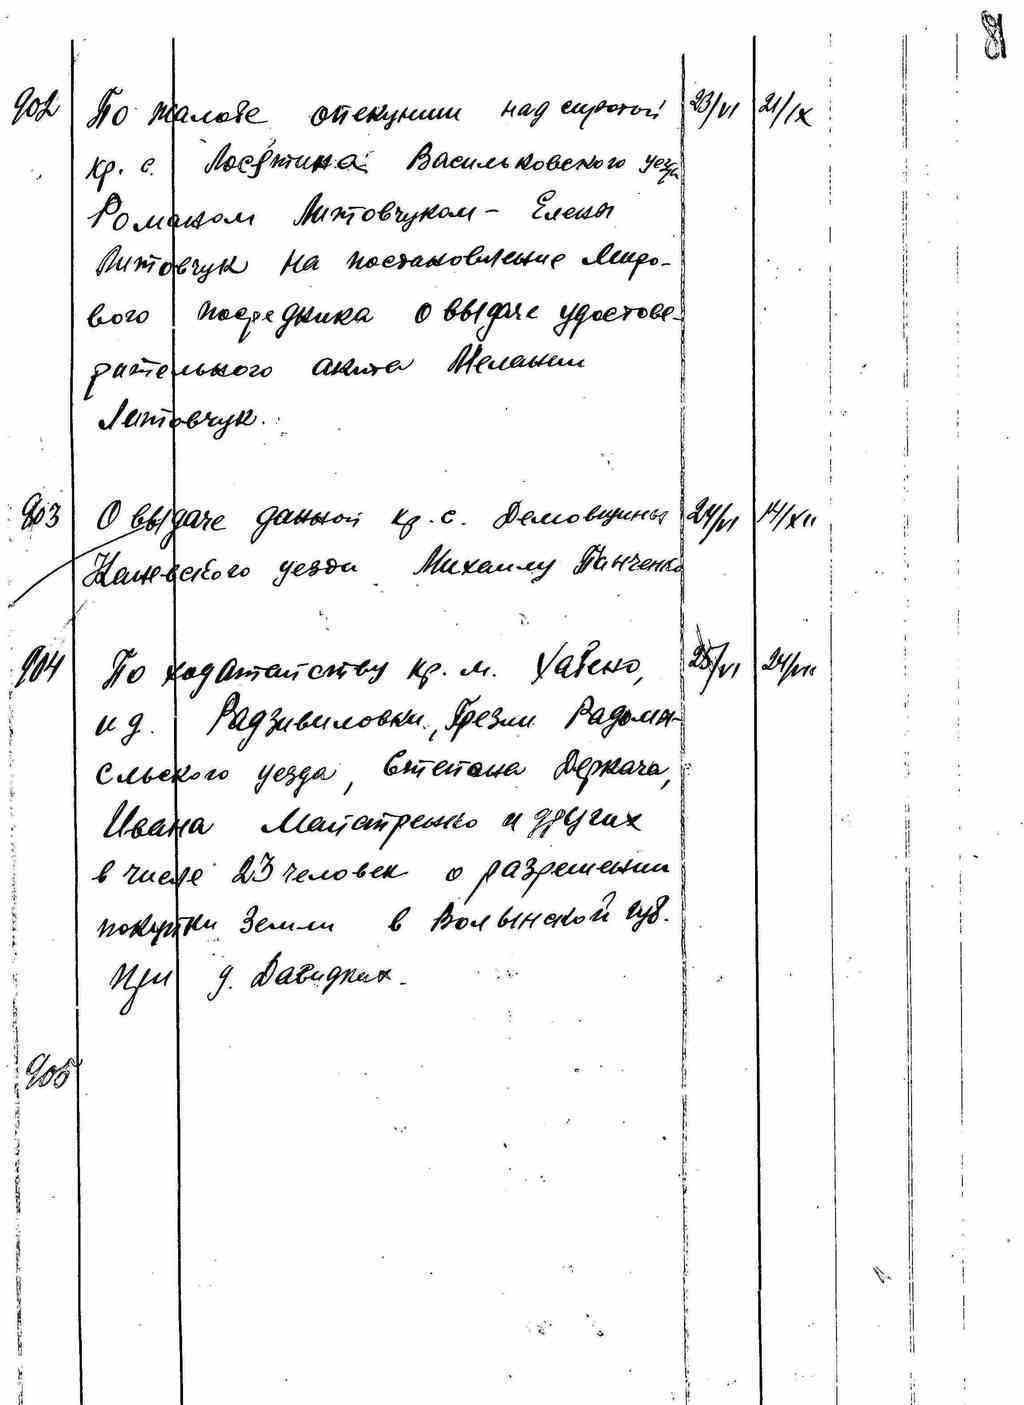 81
902 По жалобе опекунши над сиротой 23/VI 21/IX
кр. с. Лосятина Васильковского уезда
Романом Литовчуком - Елены
Литовчук на постановление Миро-
вого посредника о выдаче удостове-
рительного акта Мелании
Литовчук.
903 О выдаче данной кр. с. Демовщины 24/VI 14/XII
Каневского уезда Михаилу Панченко
904 По ходатайству кр. м. Хабено, 25/VI 24/VII
и д. Радзивиловки, Грезли Радомы-
сльского уезда, Степана Деркача,
Ивана Майстренко и других
в числе 23 человек о разрешении
покупки земли в Волынской губ.
при д. Давидках.
905